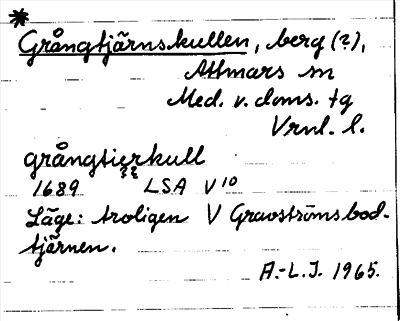 *
Grångtjärnskullen, berg (?),
Attmars sn
Med. v. doms. tg
Vrnl. l.
grångtierkull
??
1689 LSA V10
Läge: troligen V Gravströmsbod-
tjärnen.
A.-L.J. 1965.